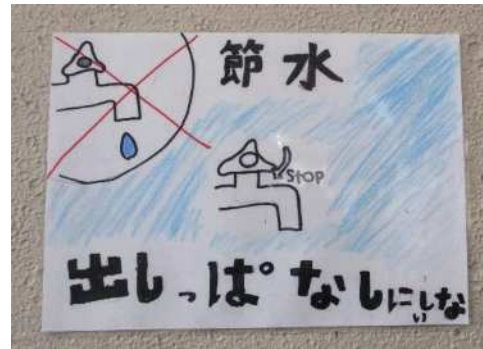 節水
STOP
出しっぱなしにしない